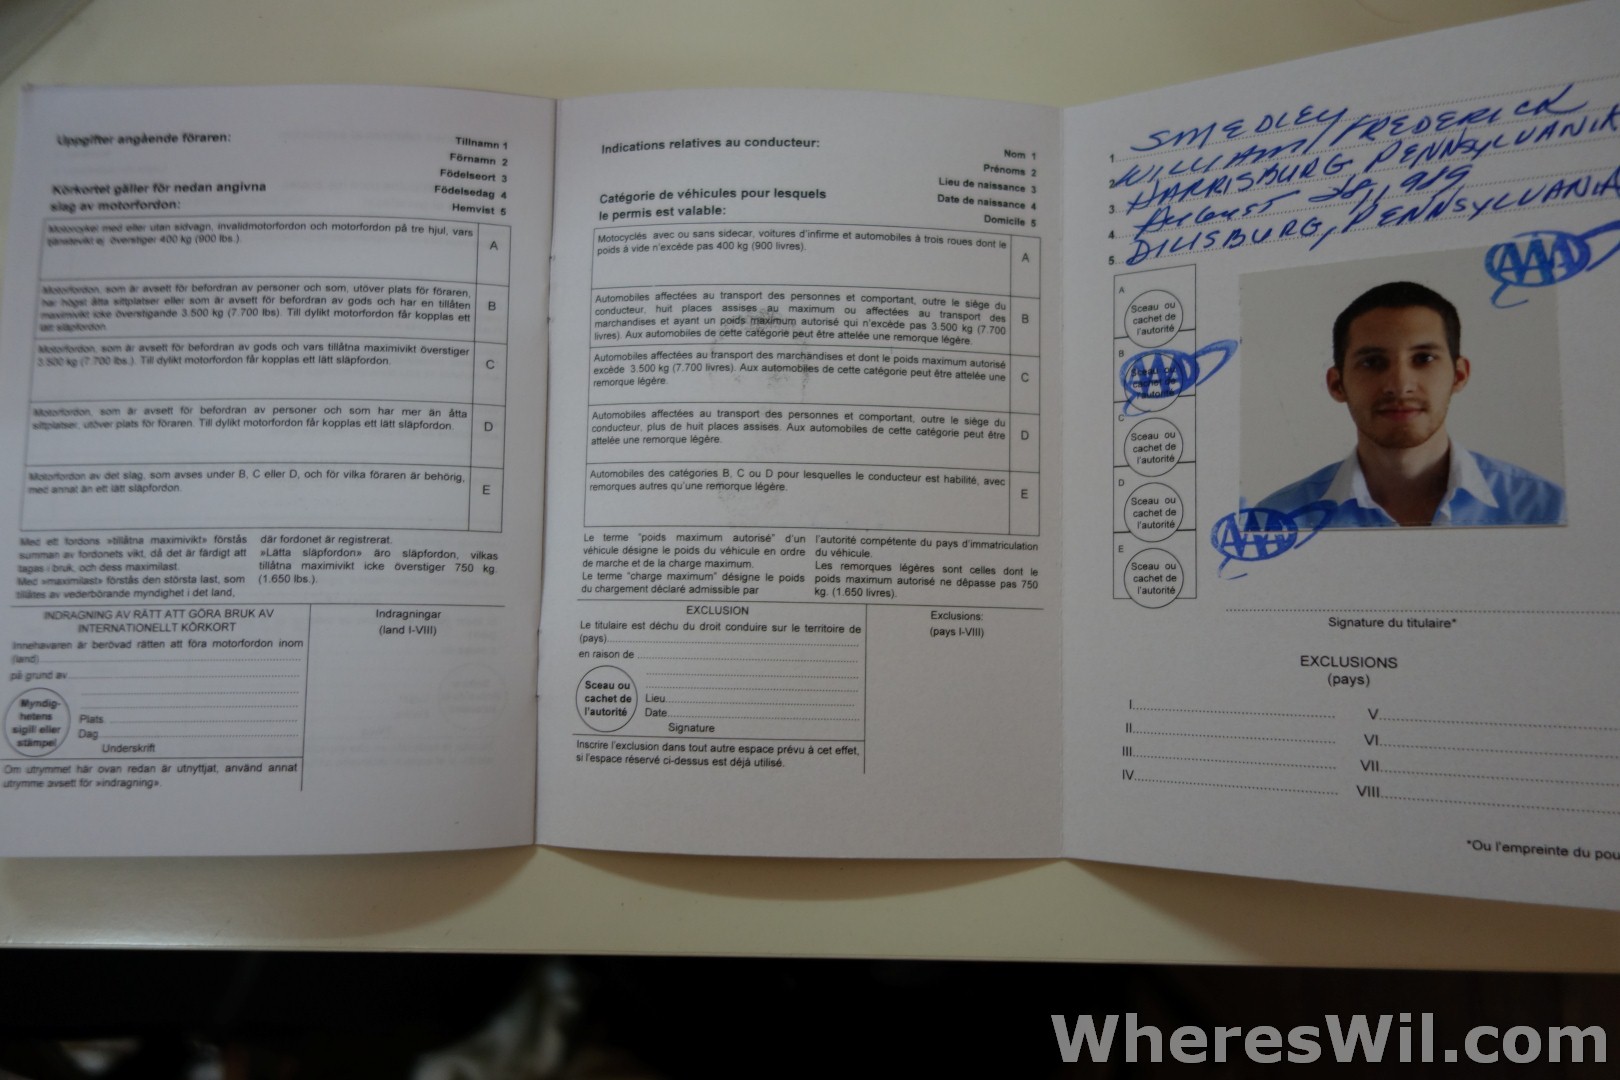 Uppgifter angående föraren:
Tillnamn 1
Förnamn 2
Födelseort 3
Födelsedag 4
Hemvist 5
Körkortet gäller för nedan angivna
slag av motorfordon:
Motorcykel med eller utan sidvagn, invalidmotorfordon och motorfordon på tre hjul, vars
tjänstevikt ej överstiger 400 kg (900 lbs.).
A
Motorfordon, som är avsett för befordran av personer och som, utöver plats för föraren,
har högst åtta sittplatser eller som är avsett för befordran av gods och har en tillåten
maximivikt icke överstigande 3.500 kg (7.700 lbs). Till dylikt motorfordon får kopplas ett
lätt släpfordon.
B
Motorfordon, som är avsett för befordran av gods och vars tillåtna maximivikt överstiger
3.500 kg (7.700 lbs.). Till dylikt motorfordon får kopplas ett lätt släpfordon.
C
Motorfordon, som är avsett för befordran av personer och som har mer än åtta
sittplatser, utöver plats för föraren. Till dylikt motorfordon får kopplas ett lätt släpfordon.
D
Motorfordon av det slag, som avses under B, C eller D, och för vilka föraren är behörig,
med annat än ett lätt släpfordon.
E
Med ett fordons »tillåtna maximivikt» förstås
summan av fordonets vikt, då det är färdigt att
tagas i bruk, och dess maximilast.
Med »maximilast» förstås den största last, som
tillåtes av vederbörande myndighet i det land,
där fordonet är registrerat.
»Lätta släpfordon» äro släpfordon, vilkas
tillåtna maximivikt icke överstiger 750 kg.
(1.650 lbs.).
INDRAGNING AV RÄTT ATT GÖRA BRUK AV
INTERNATIONELLT KÖRKORT
Innehavaren är berövad rätten att föra motorfordon inom
(land)
på grund av
Myndig-
hetens
sigill eller
stämpel
Plats
Dag
Underskrift
Om utrymmet här ovan redan är utnyttjat, använd annat
utrymme avsett för »indragning».
Indragningar
(land I-VIII)
Indications relatives au conducteur:
Nom 1
Prénoms 2
Lieu de naissance 3
Date de naissance 4
Domicile 5
Catégorie de véhicules pour lesquels
le permis est valable:
Motocyclés avec ou sans sidecar, voitures d'infirme et automobiles à trois roues dont le
poids à vide n'excède pas 400 kg (900 livres).
A
Automobiles affectées au transport des personnes et comportant, outre le siège du
conducteur, huit places assises au maximum ou affectées au transport des
marchandises et ayant un poids maximum autorisé qui n'excède pas 3.500 kg (7.700
livres). Aux automobiles de cette catégorie peut être attelée une remorque légère.
B
Automobiles affectées au transport des marchandises et dont le poids maximum autorisé
excède 3.500 kg (7.700 livres). Aux automobiles de cette catégorie peut être attelée une
remorque légère.
C
Automobiles affectées au transport des personnes et comportant, outre le siège du
conducteur, plus de huit places assises. Aux automobiles de cette catégorie peut être
attelée une remorque légère.
D
Automobiles des catégories B, C ou D pour lesquelles le conducteur est habilité, avec
remorques autres qu'une remorque légère.
E
Le terme "poids maximum autorisé" d'un
véhicule désigne le poids du véhicule en ordre
de marche et de la charge maximum.
Le terme "charge maximum" désigne le poids
du chargement déclaré admissible par
l'autorité compétente du pays d'immatriculation
du véhicule.
Les remorques légères sont celles dont le
poids maximum autorisé ne dépasse pas 750
kg. (1.650 livres).
EXCLUSION
Le titulaire est déchu du droit conduire sur le territoire de
(pays)
en raison de
Sceau ou
cachet de
l'autorité
Lieu
Date
Signature
Inscrire l'exclusion dans tout autre espace prévu à cet effet,
si l'espace réservé ci-dessus est déjà utilisé.
Exclusions:
(pays I-VIII)
1 SMEDLEY
2 WILLIAM/FREDERICK
3 HARRISBURG PENNSYLVANIA
4 August 24, 1989
5 DILLSBURG, PENNSYLVANIA
AAA
A
Sceau ou
cachet de
l'autorité
B
AAA
Sceau ou
cachet de
l'autorité
C
Sceau ou
cachet de
l'autorité
D
Sceau ou
cachet de
l'autorité
E
Sceau ou
cachet de
l'autorité
AAA
Signature du titulaire*
EXCLUSIONS
(pays)
I
II
III
IV
V
VI
VII
VIII
*Ou l'empreinte du pou
WheresWil.com